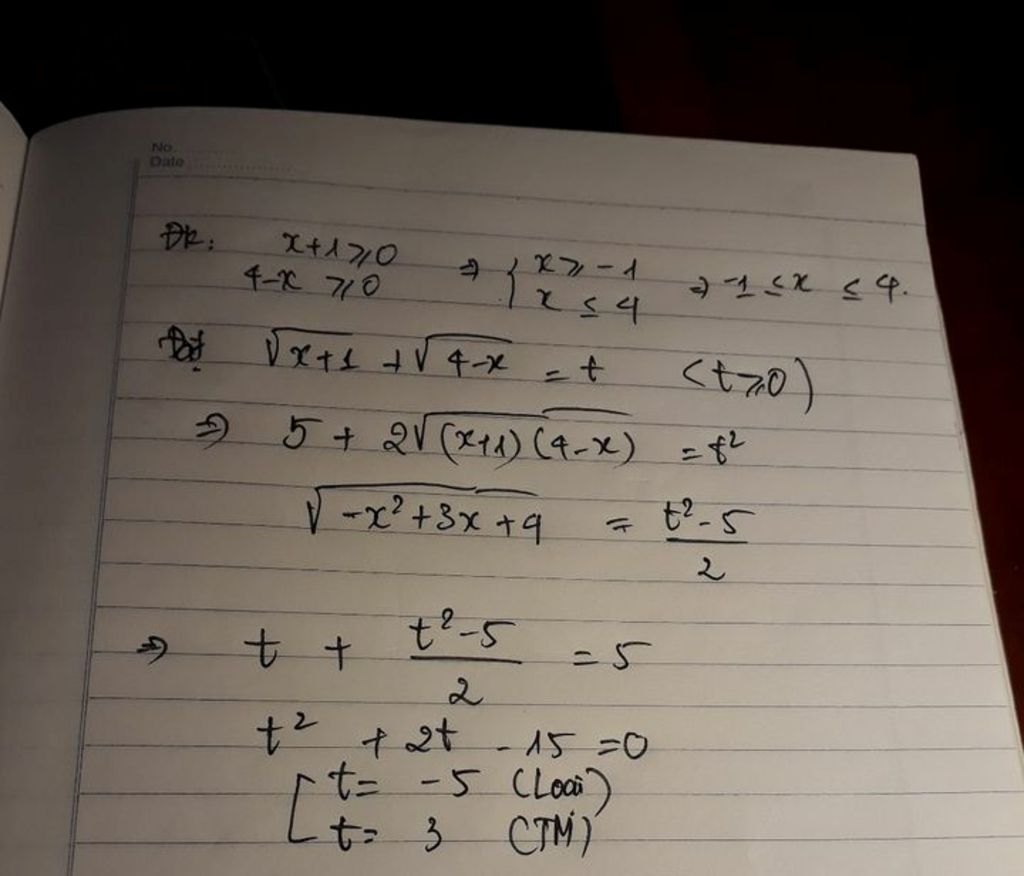 No.
Date
Đk: x+1 ≥ 0 ⇒ { x ≥ -1 ⇒ -1 ≤ x ≤ 4.
4-x ≥ 0 x ≤ 4
Đặt √(x+1) + √(4-x) = t (t ≥ 0)
⇒ 5 + 2√((x+1)(4-x)) = t²
√(-x²+3x+4) = (t²-5)/2
⇒ t + (t²-5)/2 = 5
t² + 2t - 15 = 0
[ t = -5 (Loại)
t = 3 (TM)